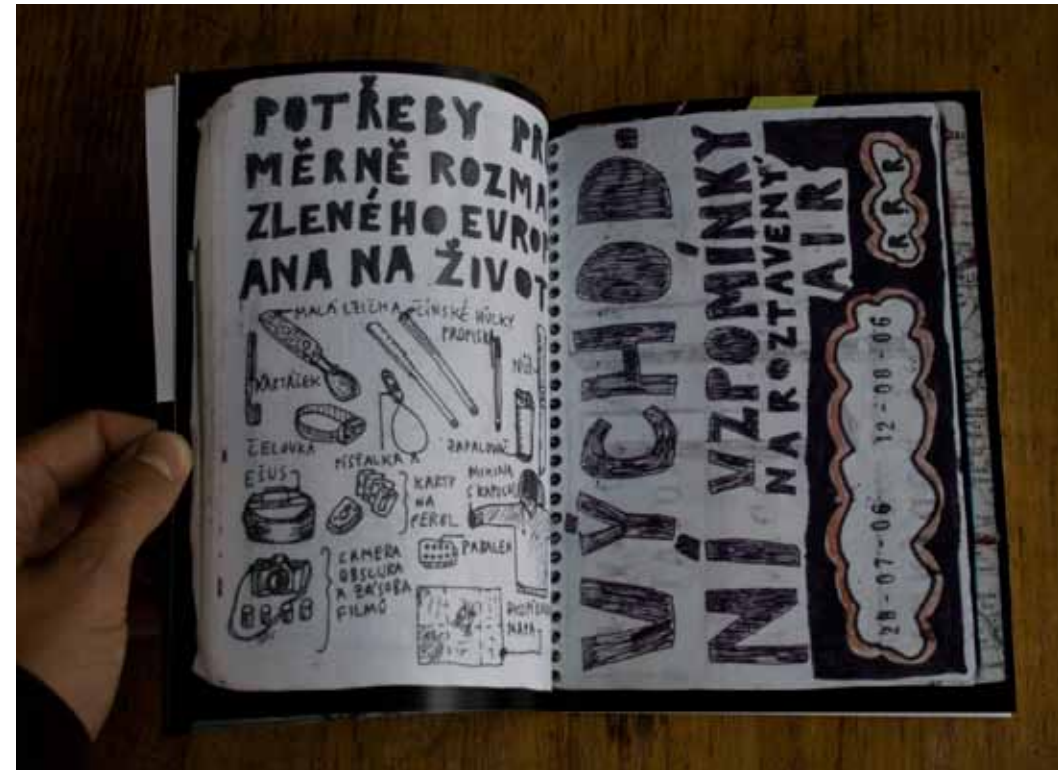 POTŘEBY PR
MĚRNĚ ROZMA
ZLENÉHO EVROP
ANA NA ŽIVOT
MALÁ LŽIČKA
ČÍNSKÉ HŮLKY
PROPISKA
NŮŽ
KARTÁČEK
ČELOVKA
PÍŠŤALKA
ZAPALOVAČ
EŠUS
KARTY
NA
PERŠÍ
MIKINA
S KAPUCÍ
CAMERA
OBSCURA
A ZÁSOBA
FILMŮ
PARALEN
MAPA
VÝCHOD.
NÍ VZPOMÍNKY
NA ROZTAVENÝ
AIR
RRR
28-07-06 12-08-06